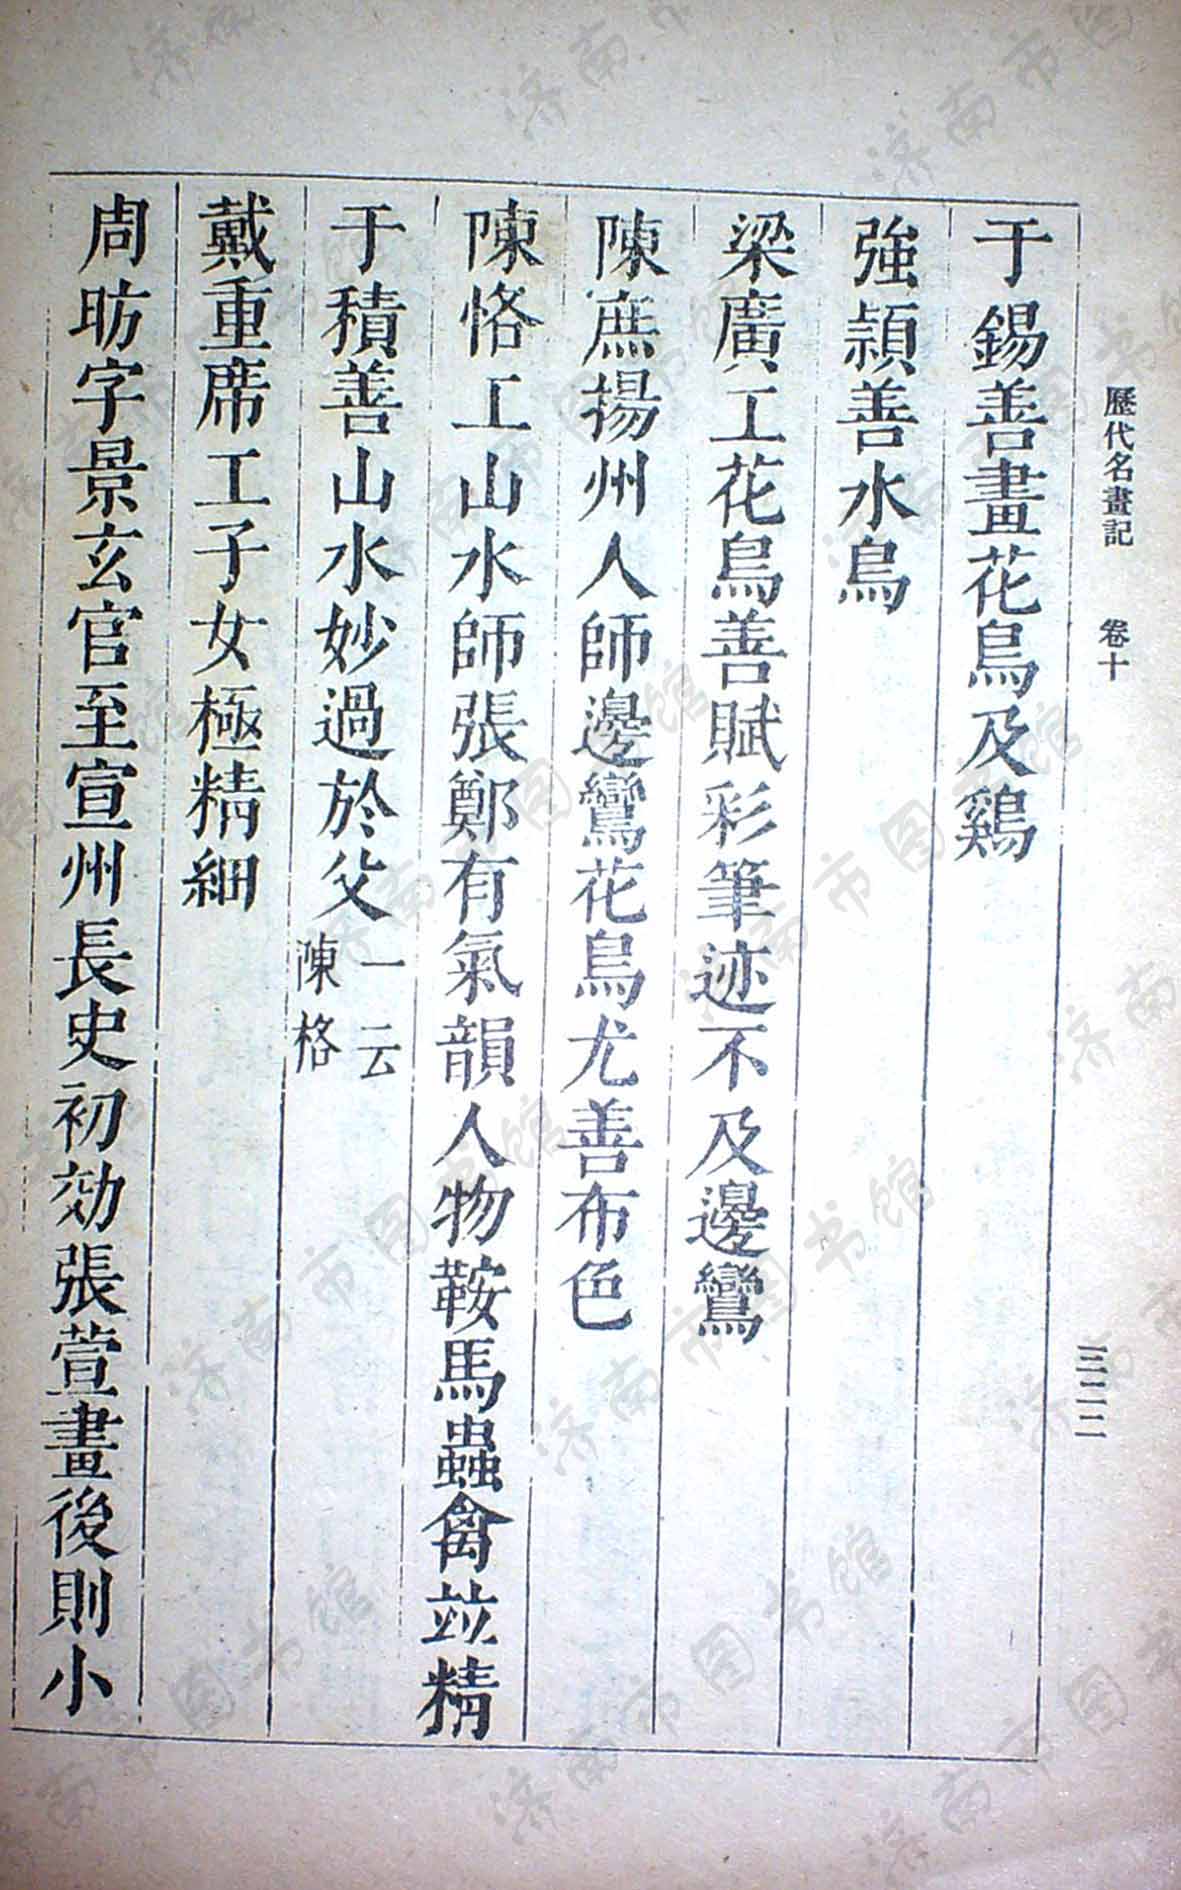 歷代名畫記　卷十　三二二
于錫善畫花鳥及鷄
強頴善水鳥
梁廣工花鳥善賦彩筆迹不及邊鸞
陳庶揚州人師邊鸞花鳥尤善布色
陳恪工山水師張鄭有氣韻人物鞍馬蟲禽竝精
于積善山水妙過於父一云陳格
戴重席工子女極精細
周昉字景玄官至宣州長史初効張萱畫後則小
济南市图书馆